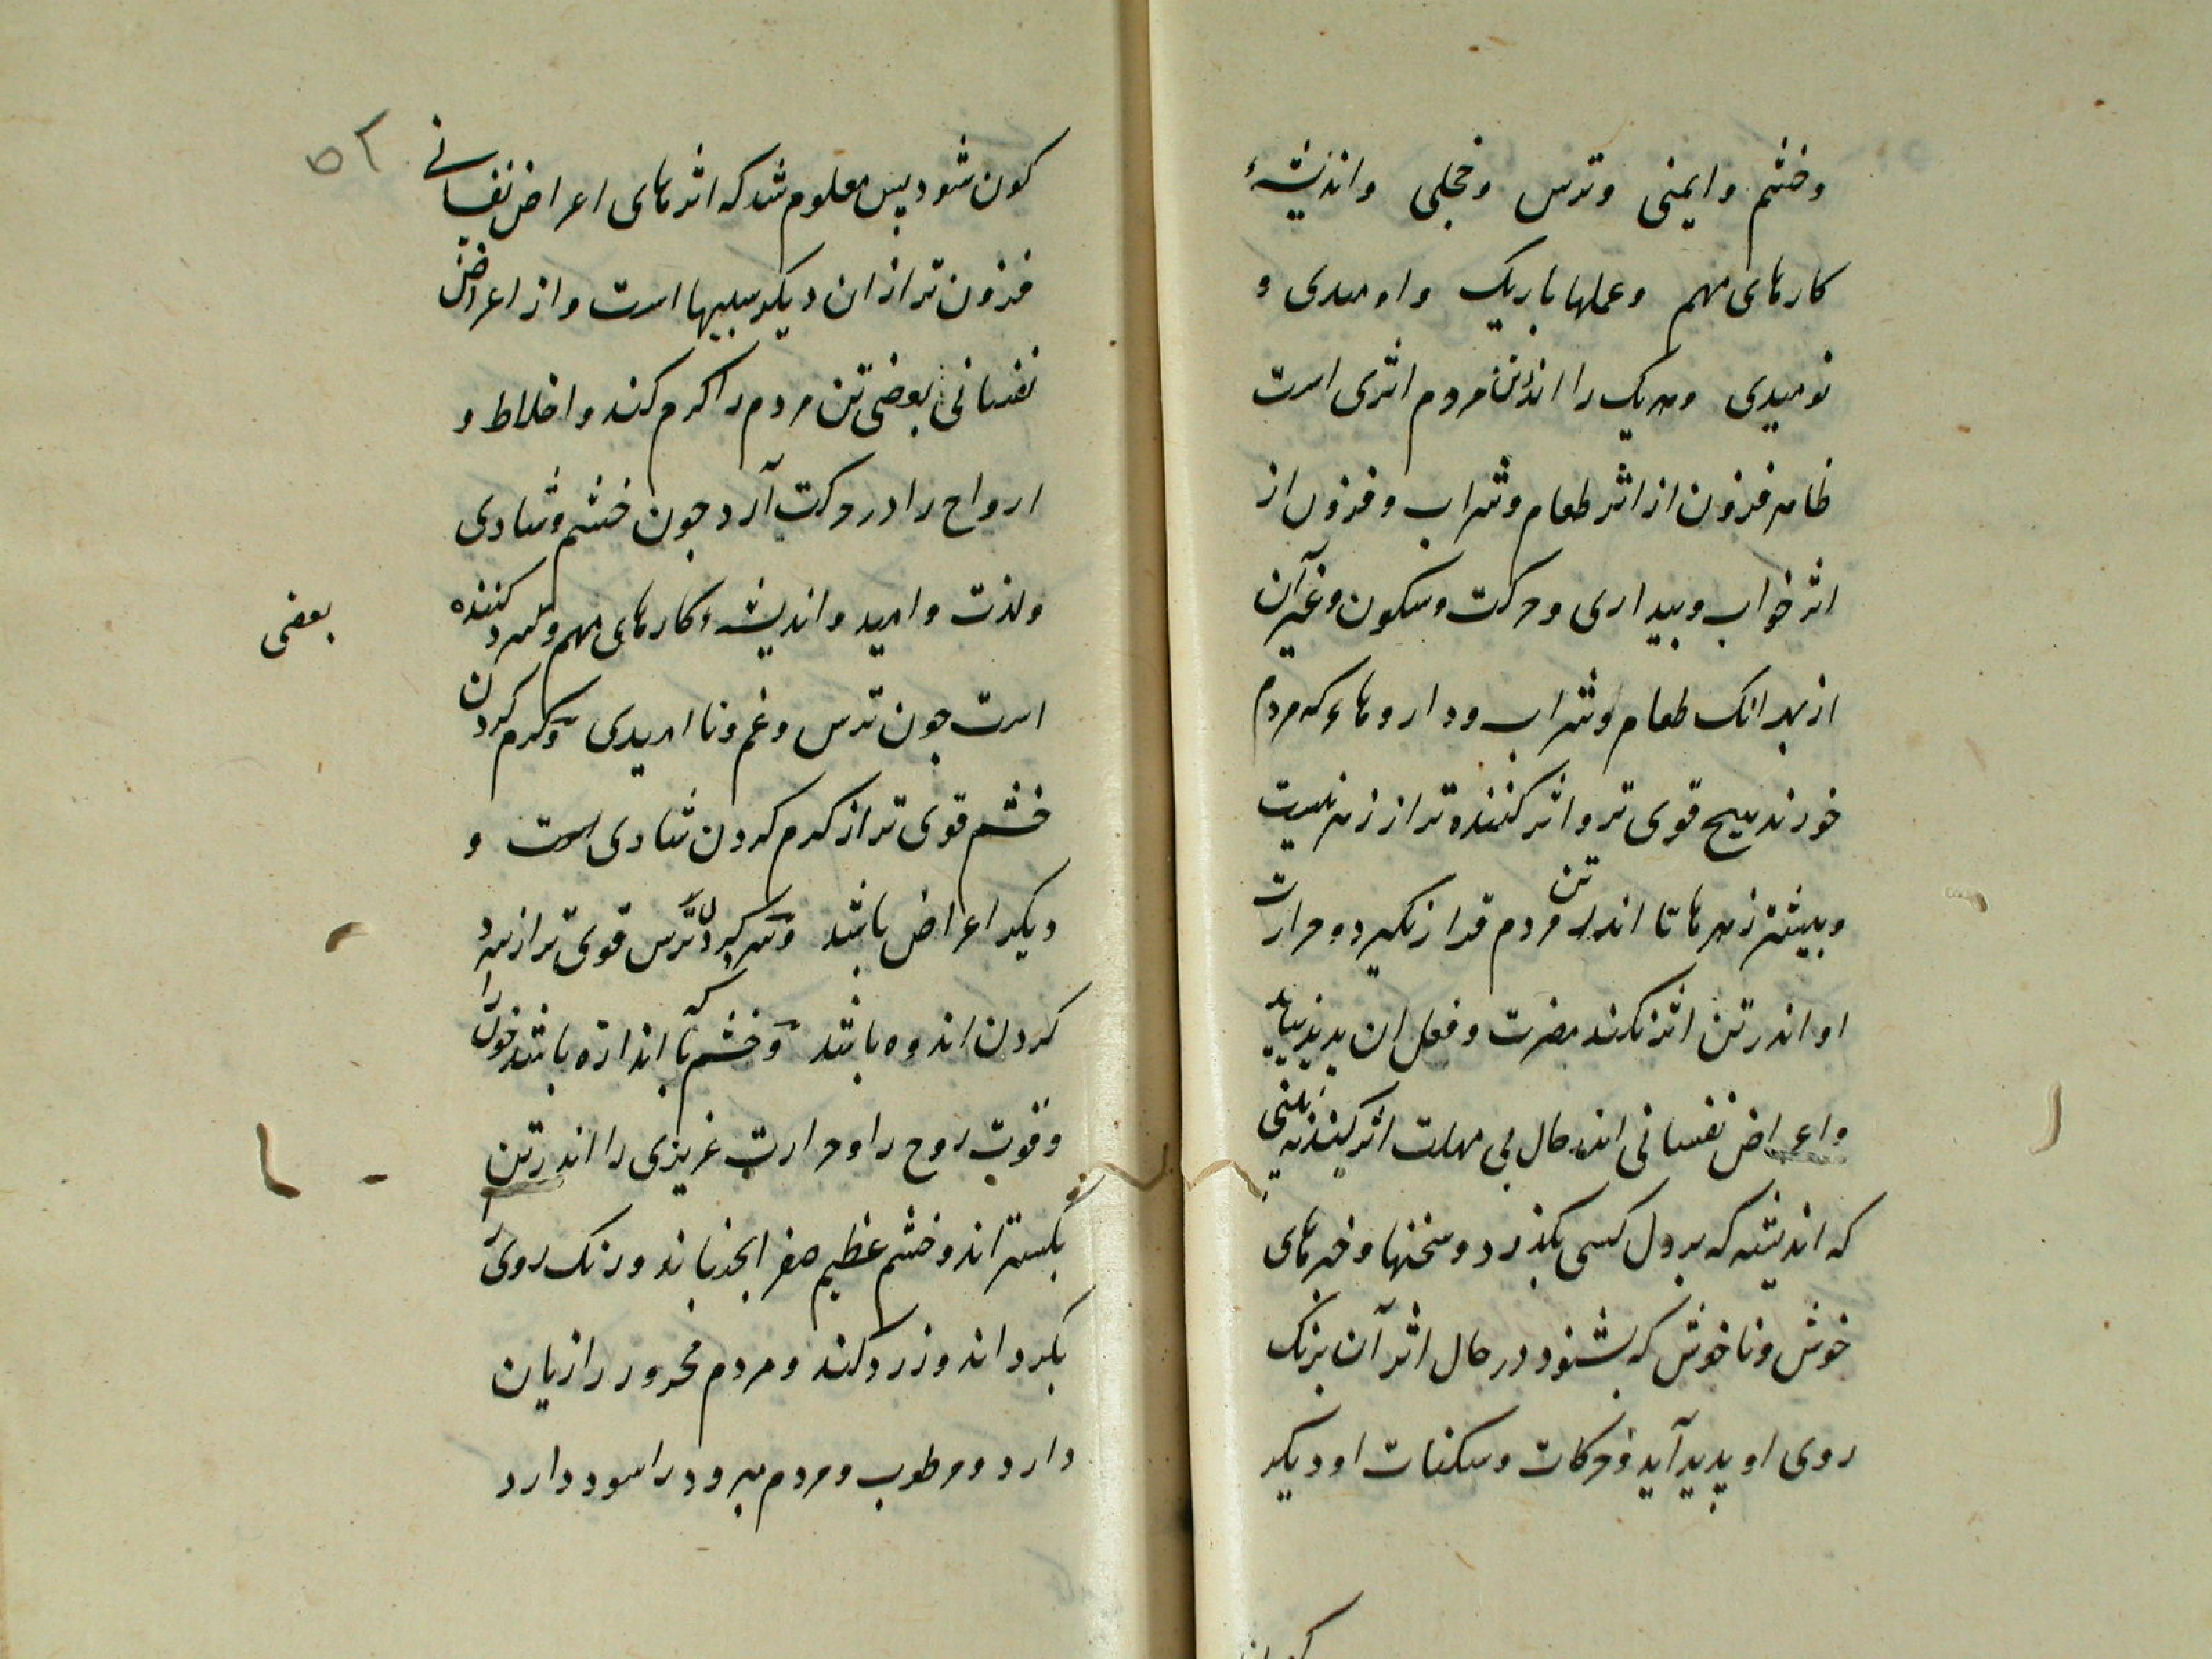 وخشم وایمنی وترس وخجلی واندیشۀ
کارهای مهم وعملها باریک واومیدی و
نومیدی وهریک را اندرتن مردم اثری است
ظاهر فزون از اثر طعام وشراب وفزون از
اثر خواب وبیداری وحرکت وسکون وغیرآن
از بهر انک طعام وشراب وداروهاء که مردم
خورند هیچ قوی تر واثر کننده تر از زهر نیست
وبیشتر زهرها تا اندر تن مردم قرار نکیرد وحرارت
او اندر تن اثر نکند مضرت وفعل ان پدید نیاید
واعراض نفسانی اندر حال بی مهلت اثر کند نه بینی
که اندیشه که بر دل کسی بکذرد وسخنها وخبرهای
خوش وناخوش که بشنود در حال اثر آن برنک
روی او پدید آید وحرکات وسکنات او دیکر
۵۲
کون شود پس معلوم شد که اثرهای اعراض نفسانی
فزون تر از ان دیکر سببها است واز اعراض
نفسانی بعضی تن مردم را کرم کند واخلاط و
ارواح را در حرکت آرد جون خشم وشادی
ولذت وامید واندیشۀ کارهای مهم وسرد کننده
بعضی
است جون ترس وغم ونا امیدی وکرم کردن
خشم قوی تر از کرم کردن شادی است و
دیکر اعراض باشد وسرد کردن ترس قوی تر از سرد
کردن اندوه باشد وخشم که باندازه باشد خون را
وقوت روح را وحرارت غریزی را اندر تن
بکستراند وخشم عظیم صفرا بجنباند ورنک روی را
بکرداند وزرد کند ومردم محرور را زیان
دارد ومرطوب ومردم مبرود را سود دارد